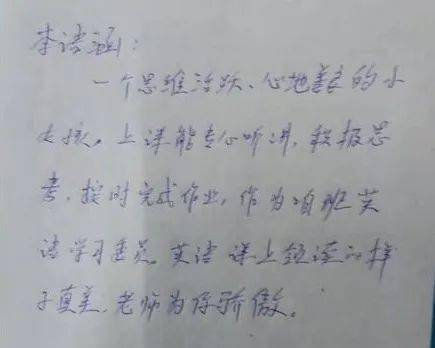 李语涵:
一个思维活跃、心地善良的小
女孩。上课能专心听讲,积极思
考,按时完成作业,作为咱班英
语学习委员。英语课上领读的样
子真美,老师为你骄傲。